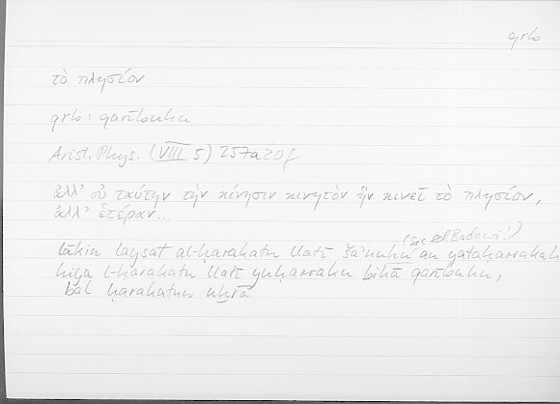 qrb
τὸ πλησίον
qrb: qarībuhu
Arist. Phys. (VIII 5) 257a20f
ἀλλ' οὐ ταύτην τὴν κίνησιν κινητὸν ἣν κινεῖ τὸ πλησίον,
ἀλλ' ἑτέραν...
(sic ed Badawi!)
lākin laysat al-ḥarakatu llatī ša'nuhu an yataḥarrakahā
hiya l-ḥarakatu llatī yuḥarraku bihā qarībuhu,
bal ḥarakatun uḫrā